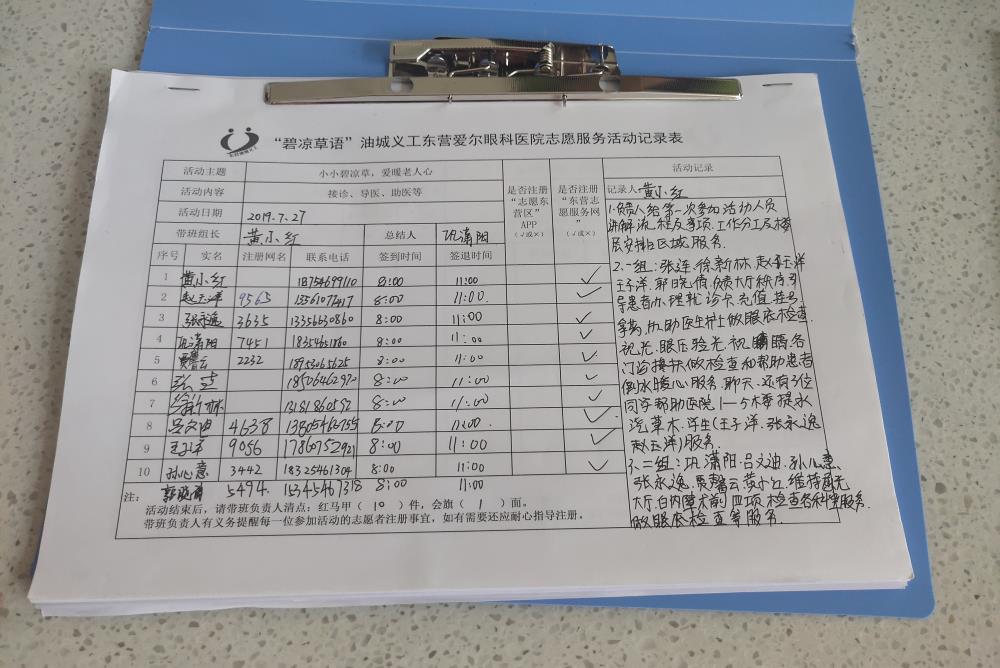 “碧凉草语”油城义工东营爱尔眼科医院志愿服务活动记录表
活动主题 小小碧凉草，爱暖老人心
活动内容 接诊、导医、助医等
活动日期 2019.7.27
带班组长 黄小红 总结人 巩潇阳
序号 实名 注册网名 联系电话 签到时间 签退时间
是否注册“志愿东营区”APP（√或×）
是否注册“东营志愿服务网”（√或×）
1 黄小红 18754699110 8:00 11:00 √
2 赵玉洋 9565 13561072417 8:00 11:00. √
3 张永逸 3635 13356630860 8:00 11:00 √
4 巩潇阳 7451 18354651860 8:00 11:00 √
5 贾馨云 2232 18953065625 8:00 11:00 √
6 张连 18506462970 8:00 11:00 √
7 徐新林 13181860592 8:00 11:00 √
8 吕文迪 4638 13805465755 8:00 11:00. √
9 王子洋 9056 17860752921 8:00 11:00 √
10 孙心意 3442 18325461304 8:00 11:00 √
郭晓倩 5494. 15345467318 8:00 11:00
注：
活动结束后，请带班负责人清点：红马甲（10）件，会旗（1）面。
带班负责人有义务提醒每一位参加活动的志愿者注册事宜，如有需要还应耐心指导注册。
活动记录
记录人 黄小红
1.负责人给第一次参加活动人员
讲解流程及事项.工作分工及楼
层安排区域服务.
2.一组:张连.徐新林.赵玉洋
王子洋.郭晓倩.负责大厅秩序.引
导患者办理就诊卡.充值.挂号
拿药,协助医生护士做眼底检查.
视光.眼压验光.视力.各
门诊搀扶做检查和帮助患者
倒水暖心服务.聊天.还有3位
同学帮助医院1—5楼提水
浇草木.学生(王子洋.张永逸
赵玉洋)服务.
3.二组:巩潇阳.吕文迪.孙心意.
张永逸.贾馨云.黄小红.维持
大厅.白内障术前四项检查各科室服务.
做眼底检查等服务.